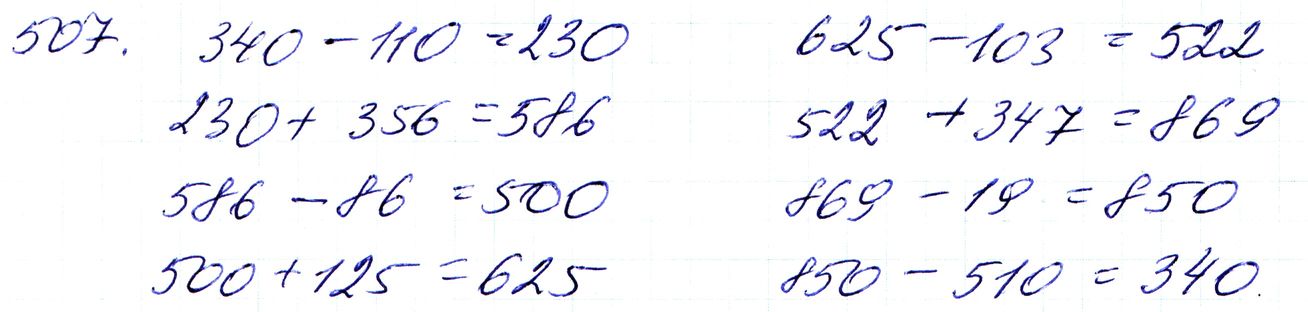 507. 340 - 110 = 230
230 + 356 = 586
586 - 86 = 500
500 + 125 = 625
625 - 103 = 522
522 + 347 = 869
869 - 19 = 850
850 - 510 = 340.